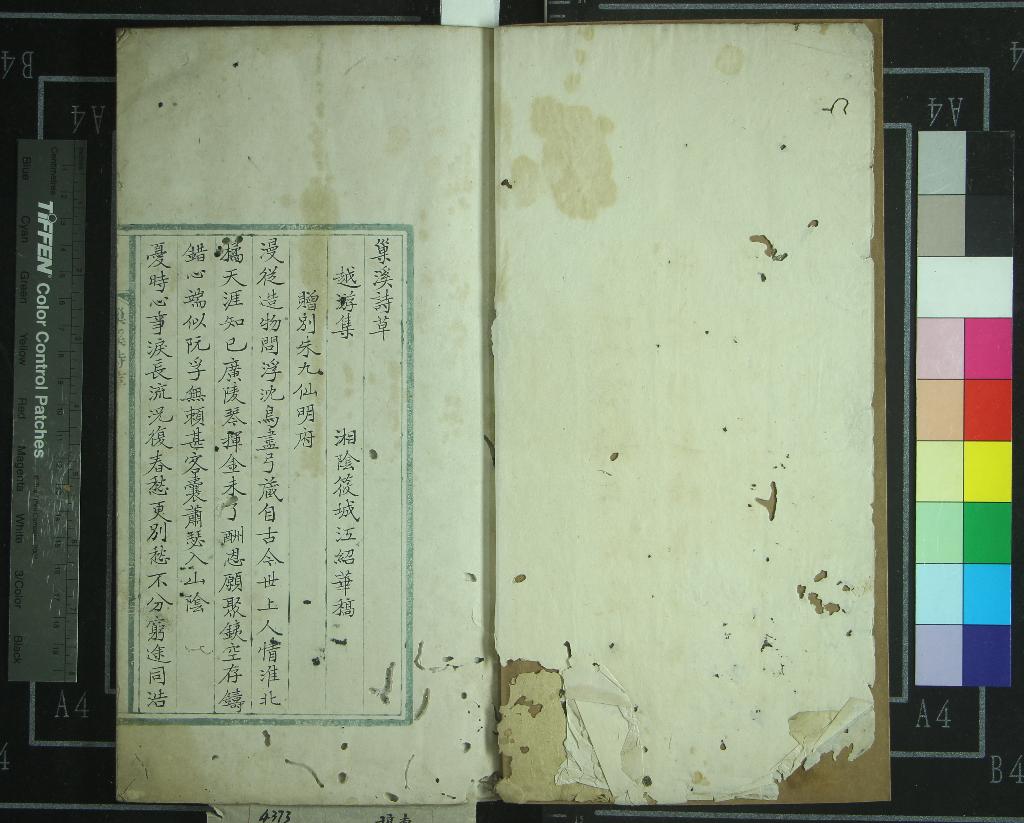 巢溪詩草
越游集 湘陰筱城江紹華稿
贈別朱九仙明府
漫從造物問浮沈鳥盡弓藏自古今世上人情淮北
橘天涯知已廣陵琴揮金未了酬恩願聚鐵空存鑄
錯心端似阮孚無賴甚客囊蕭瑟入山陰
憂時心事淚長流況復春愁更別愁不分窮途同浩
巢溪詩草
4373
TIFFEN Color Control Patches
Blue Cyan Green Yellow Red Magenta White 3/Color Black
Centimetres
B4
A4
A4
A4
A4
B4